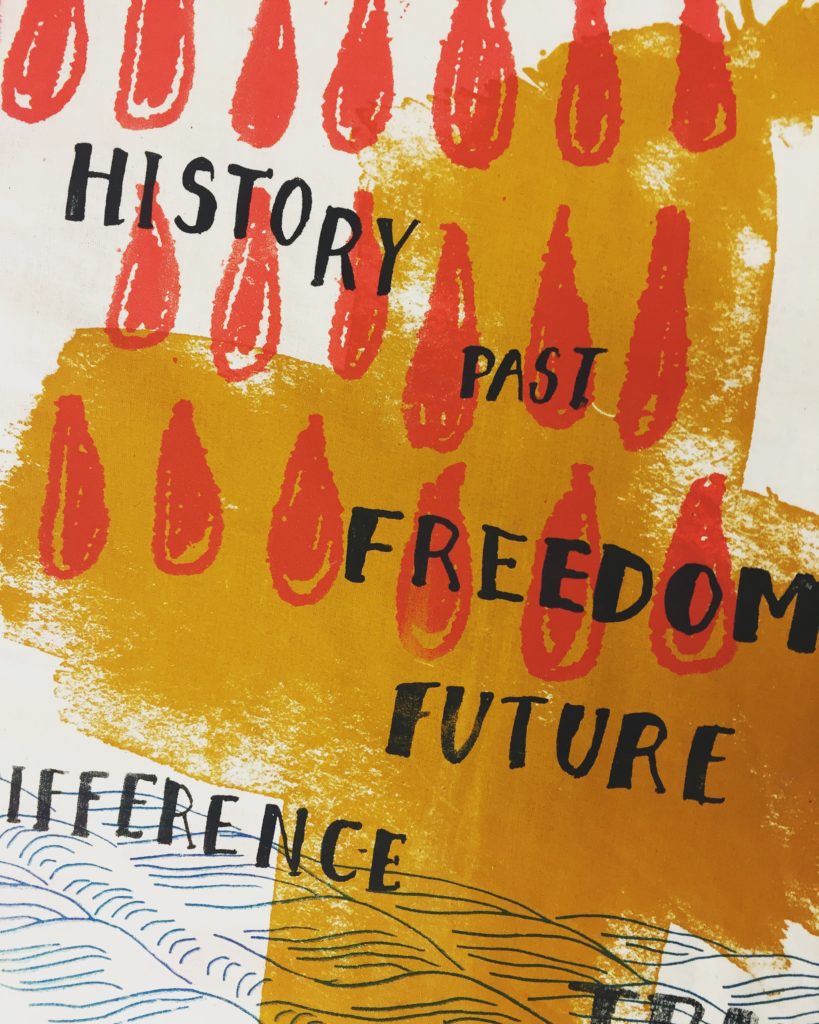 HISTORY
PAST
FREEDOM
FUTURE
IFFERENCE